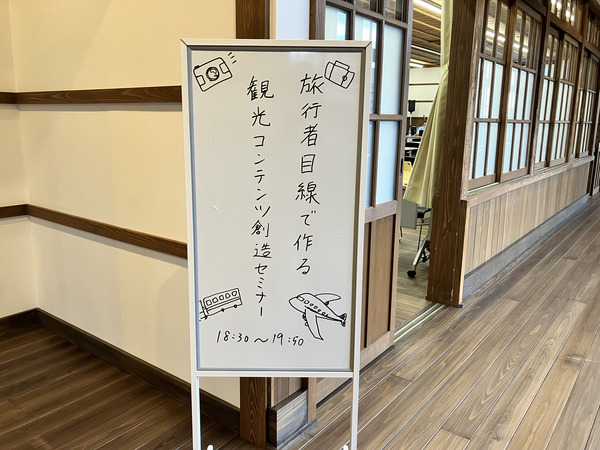 旅行者目線で作る
観光コンテンツ創造セミナー
18:30～19:50